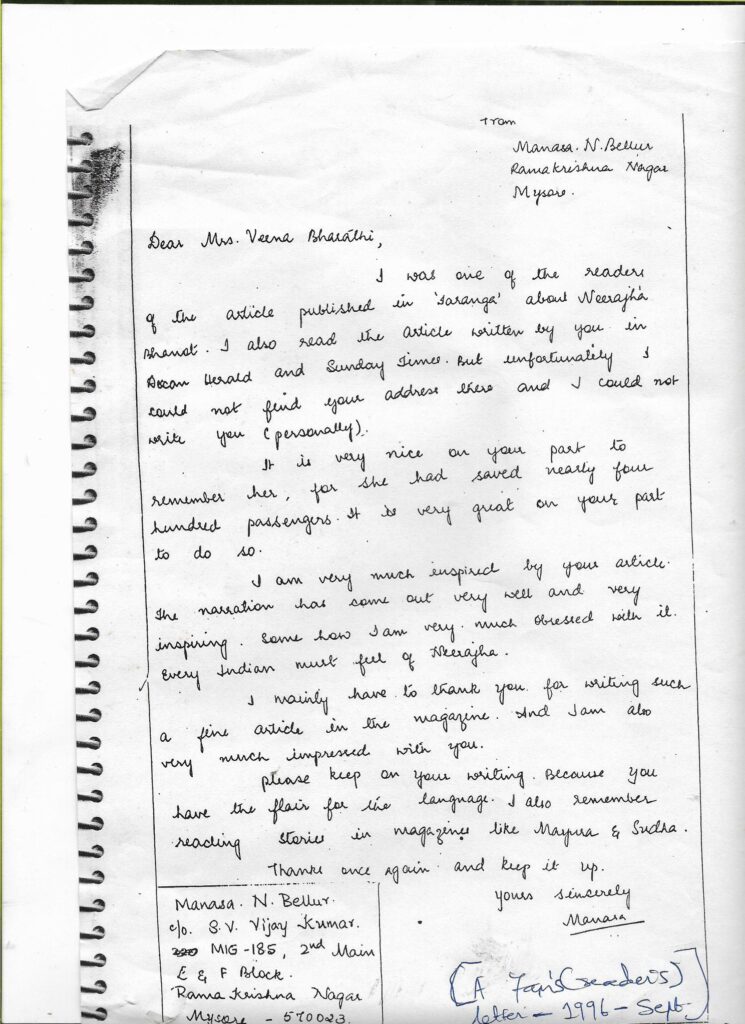 From
Manasa. N. Bellur
Ramakrishna Nagar
Mysore.
Dear Mrs. Veena Bharathi,
I was one of the readers
of the article published in 'Taranga' about Neerajha
Bhanot. I also read the article written by you in
Deccan Herald and Sunday Times. But unfortunately I
could not find your address there and I could not
write you (personally).
It is very nice on your part to
remember her, for she had saved nearly four
hundred passengers. It is very great on your part
to do so.
I am very much inspired by your article.
The narration has come out very well and very
inspiring. Some how I am very much obsessed with it.
Every Indian must feel of Neerajha.
I mainly have to thank you for writing such
a fine article in the magazine. And I am also
very much impressed with you.
please keep on your writing. Because you
have the flair for the language. I also remember
reading stories in magazines like Mayura & Sudha.
Thanks once again and keep it up.
yours sincerely
Manasa
Manasa. N. Bellur.
c/o. S. V. Vijay Kumar.
MIG-185, 2nd Main
E & F Block.
Rama Krishna Nagar
Mysore - 570023.
[A Fan's (reader's)
letter - 1996 - Sept.]